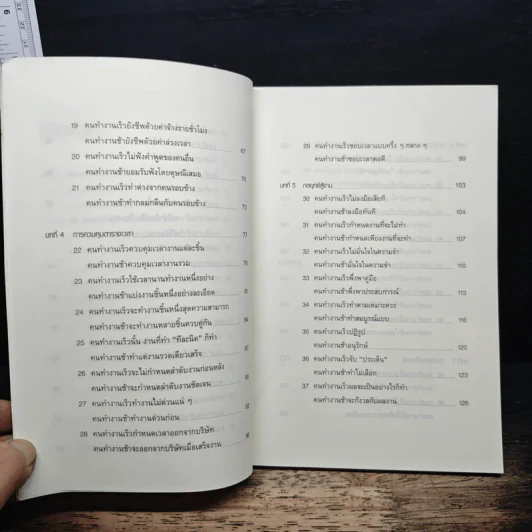 19 คนทำงานเร็วยังชีพด้วยค่าจ้างรายชั่วโมง
คนทำงานช้ายังชีพด้วยค่าล่วงเวลา 67
20 คนทำงานเร็วไม่ฟังคำพูดของคนอื่น
คนทำงานช้ายอมรับฟังโดยดุษณีเสมอ 70
21 คนทำงานเร็วทำต่างจากคนรอบข้าง
คนทำงานช้าทำกลมกลืนกับคนรอบข้าง 73
บทที่ 4 การควบคุมตารางเวลา 77
22 คนทำงานเร็วควบคุมเวลางานแต่ละชิ้น
คนทำงานช้าควบคุมเวลางานรวม 78
23 คนทำงานเร็วใช้เวลานานทำงานหนึ่งอย่าง
คนทำงานช้าแบ่งงานชิ้นหนึ่งอย่างละเอียด
24 คนทำงานเร็วจะทำงานชิ้นหนึ่งสุดความสามารถ
คนทำงานช้าจะทำงานหลายชิ้นควบคู่กัน 84
25 คนทำงานเร็วนั้น งานที่ทำ “ทีละนิด” ก็ทำ
คนทำงานช้าทำแต่งานรวดเดียวเสร็จ
26 คนทำงานเร็วจะไม่กำหนดลำดับงานก่อนหลัง
คนทำงานช้าจะกำหนดลำดับงานชัดเจน
27 คนทำงานเร็วทำงานไม่ด่วนแน่ ๆ
คนทำงานช้าทำงานด่วนก่อน
28 คนทำงานเร็วกำหนดเวลาออกจากบริษัท
คนทำงานช้าจะออกจากบริษัทเมื่อเสร็จงาน
29 คนทำงานเร็วชอบเวลาแบบครึ่ง ๆ กลาง ๆ
คนทำงานช้าชอบเวลาพอดี 99
บทที่ 5 กลยุทธ์สู่งาน 103
30 คนทำงานเร็วไม่ลงมือเสียที
คนทำงานช้าลงมือทันที 104
31 คนทำงานเร็วกำหนดงานที่จะไม่ทำ
คนทำงานช้ากำหนดเพียงงานที่จะทำ 107
32 คนทำงานเร็วไม่มั่นใจในความจำ
คนทำงานช้ามั่นใจในความจำ 110
33 คนทำงานเร็วพึ่งพาคู่มือ
คนทำงานช้าพึ่งพาประสบการณ์ 113
34 คนทำงานเร็วทำตามเหมาะควร
คนทำงานช้าทำสมบูรณ์แบบ 116
35 คนทำงานเร็วปฏิรูป
คนทำงานช้าอนุรักษ์ 120
36 คนทำงานเร็วจับ “ประเด็น”
คนทำงานช้าทำไม่เลือก 123
37 คนทำงานเร็วผลจะเป็นอย่างไรก็ทำ
คนทำงานช้าจะกังวลกับผลงาน 126